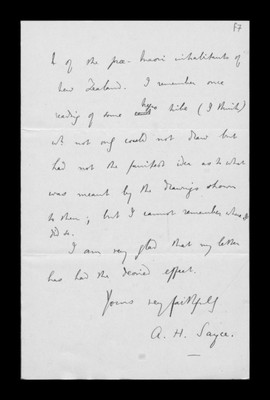 57
& of the præ-Maori inhabitants of
New Zealand. I remember once
reading of some hill tribe (I think)
wh not only could not draw but
had not the faintest idea as to what
was meant by the drawings shown
to them; but I cannot remember where
I am very glad that my letter
has had the desired effect.
Yours very faithfully
A. H. Sayce.